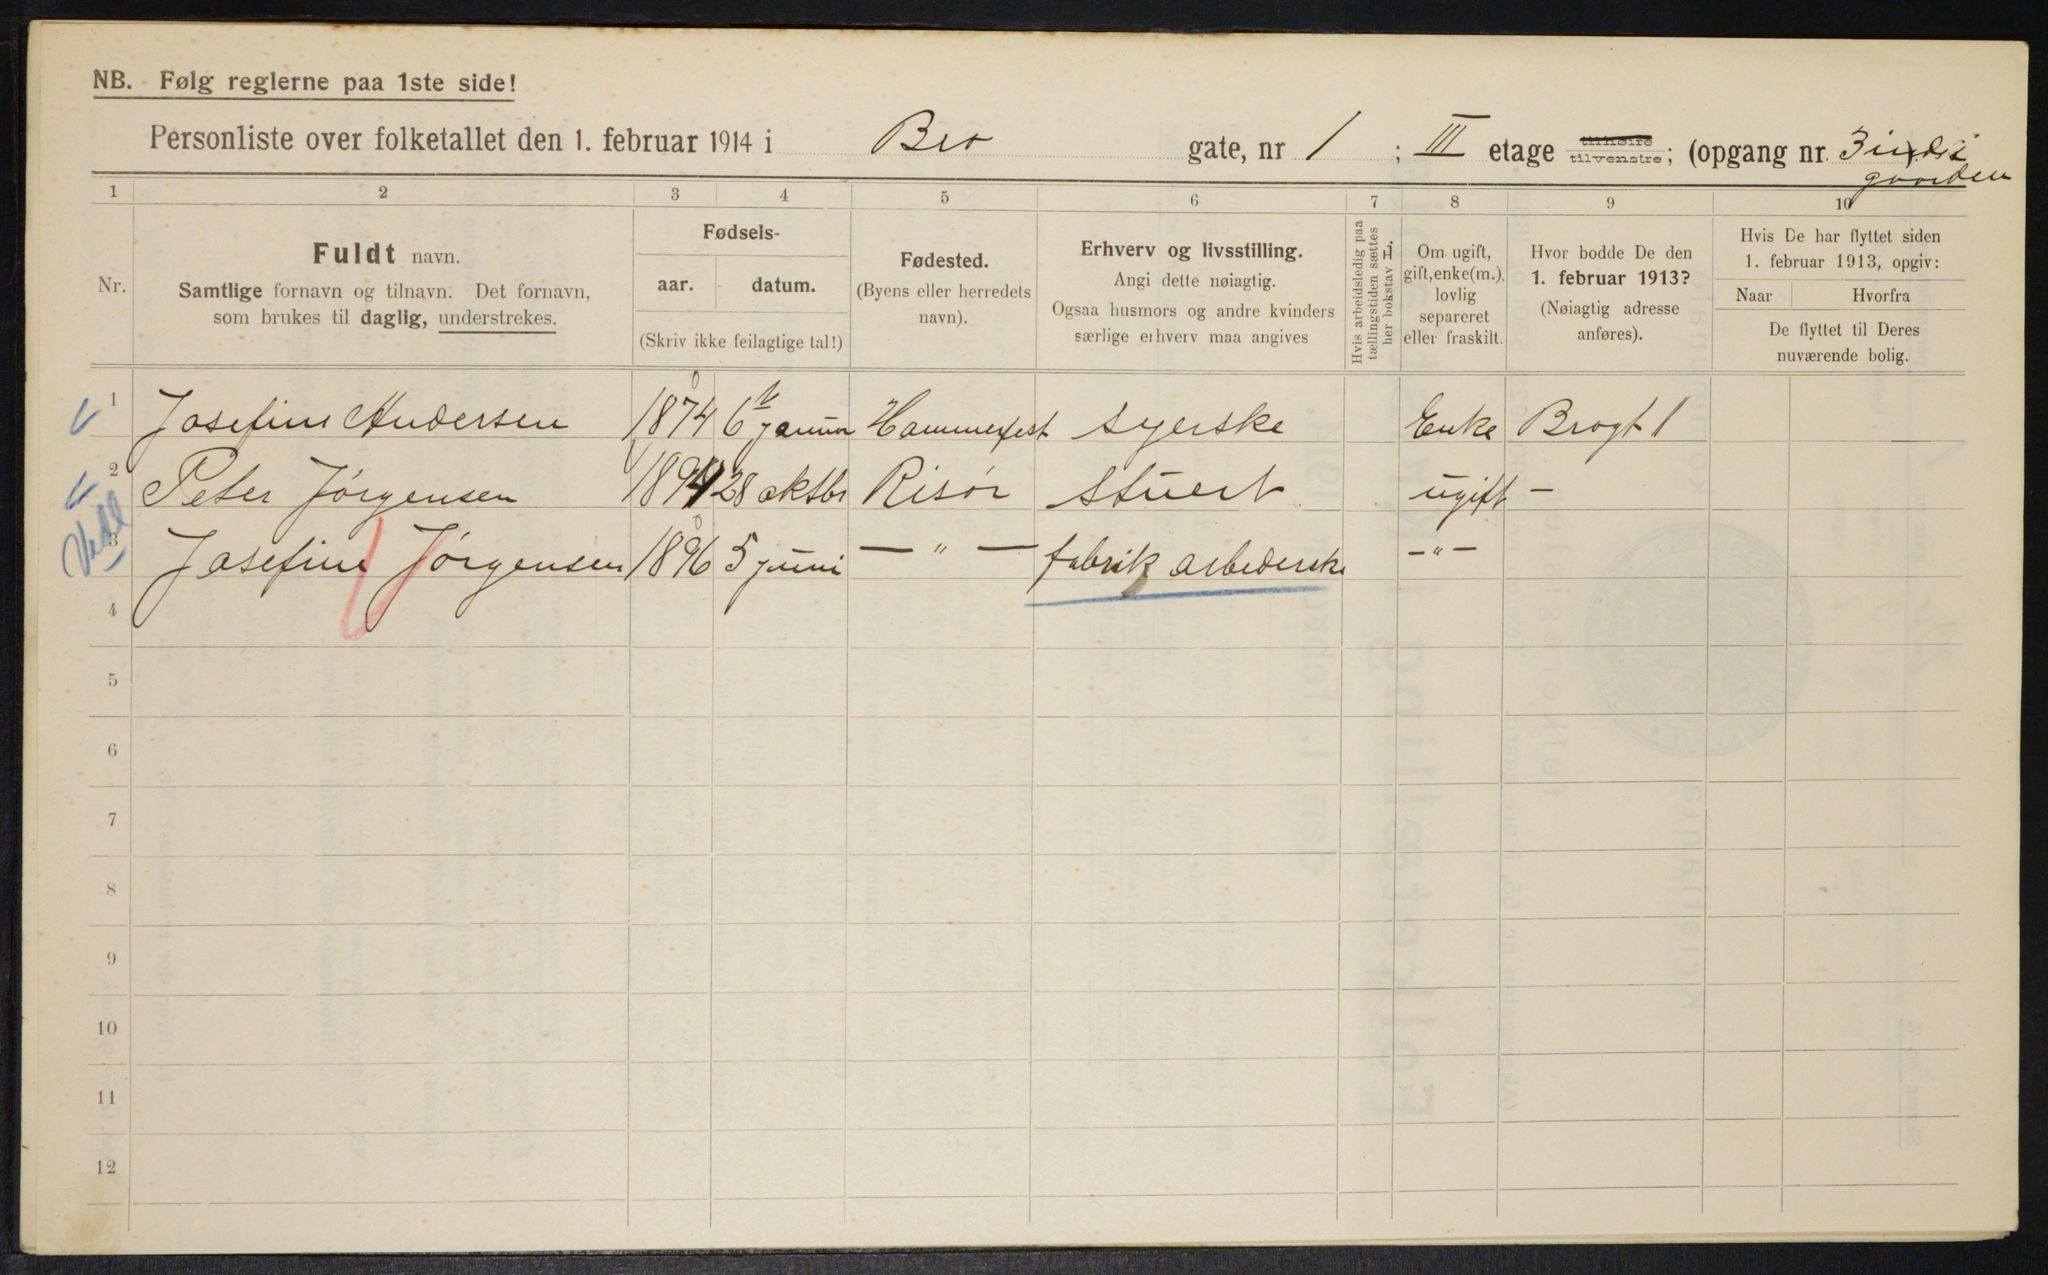 NB. Følg reglerne paa 1ste side!
Personliste over folketallet den 1. februar 1914 i Bro gate, nr 1 ; III etage tilhøire tilvenstre; (opgang nr. 3
gaarden
1 2 3 4 5 6 7 8 9 10
Nr.
Fuldt navn.
Samtlige fornavn og tilnavn. Det fornavn,
som brukes til daglig, understrekes.
Fødsels-
aar. datum.
(Skriv ikke feilagtige tal!)
Fødested.
(Byens eller herredets
navn).
Erhverv og livsstilling.
Angi dette nøiagtig.
Ogsaa husmors og andre kvinders
særlige erhverv maa angives
Hvis arbeidsledig paa
tællingstiden sættes
her bokstav H.
Om ugift,
gift, enke(m.),
lovlig
separeret
eller fraskilt.
Hvor bodde De den
1. februar 1913?
(Nøiagtig adresse
anføres).
Hvis De har flyttet siden
1. februar 1913, opgiv:
Naar Hvorfra
De flyttet til Deres
nuværende bolig.
1 Josefine Andersen 1874 6 januar Hammerfest syerske Enke Brogt 1
2 Peter Jørgensen 1894 28 oktbr Risør stuert ugift —
3 Josefine Jørgensen 1896 5 juni — " — fabrik arbederske — " —
4
5
6
7
8
9
10
11
12